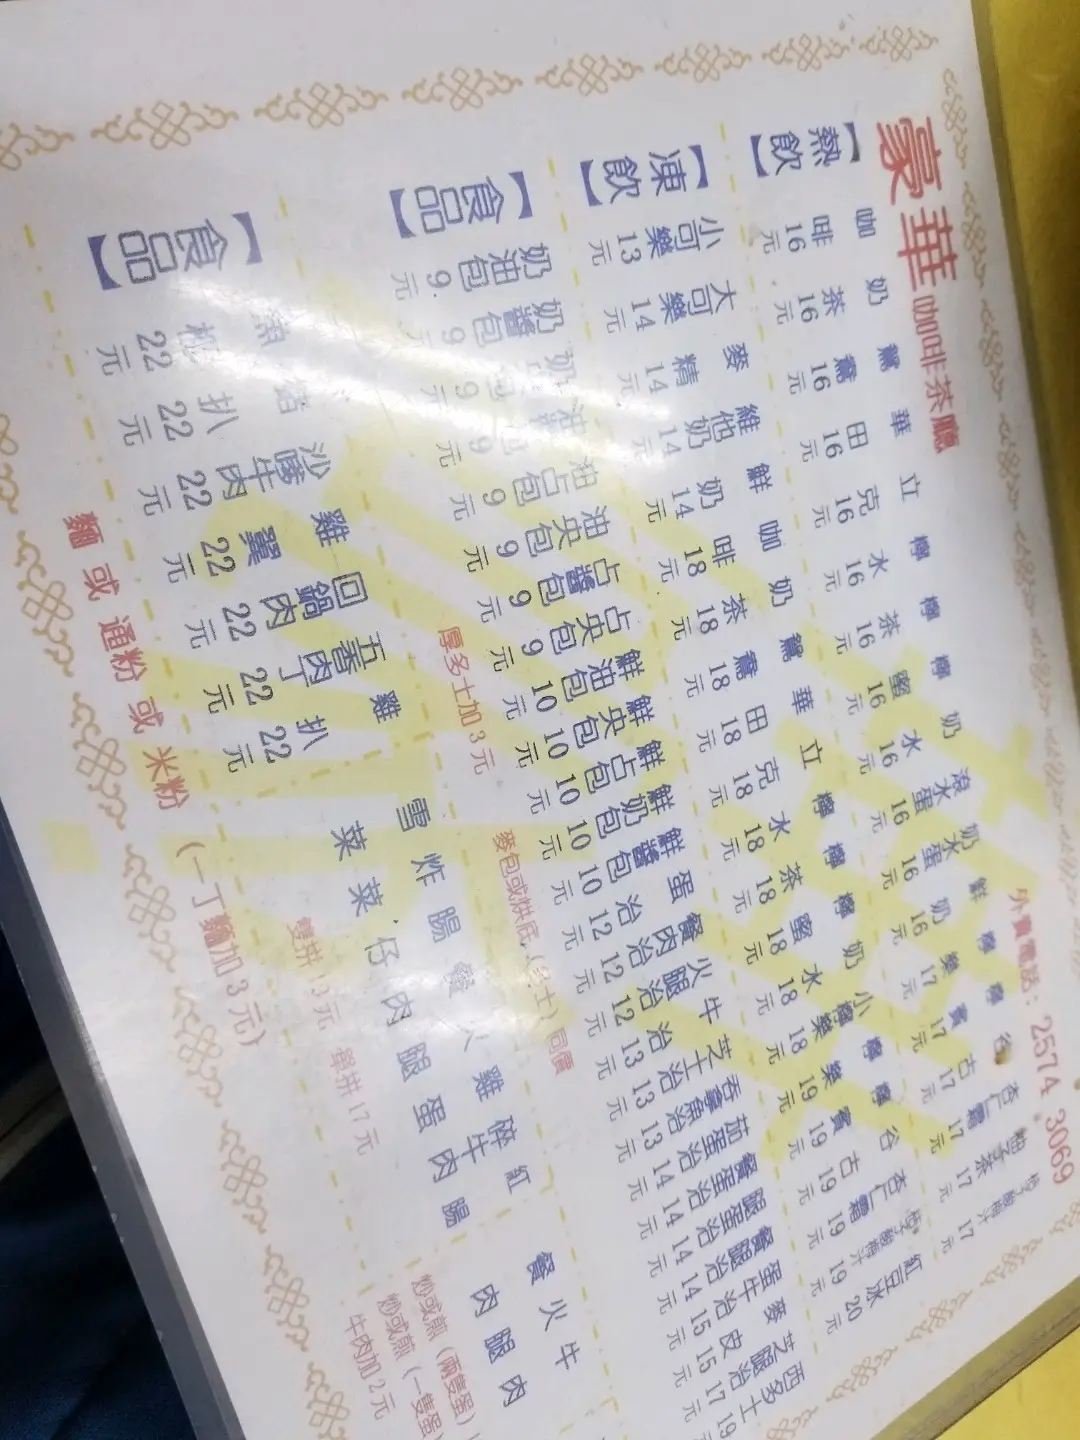 豪華咖啡茶廳
外賣電話：2574 3069
【熱飲】
咖啡 16元
奶茶 16元
鴛鴦 16元
華田 16元
立克 16元
檸水 16元
檸茶 16元
檸蜜 16元
奶水 16元
滾水蛋 16元
奶水蛋 16元
鮮奶 16元
檸樂 17元
檸賓 17元
谷古 17元
杏仁霜 17元
柚子茶 17元
17元
【凍飲】
小可樂 13元
大可樂 14元
麥精 14元
維他奶 14元
鮮奶 14元
咖啡 18元
奶茶 18元
鴛鴦 18元
華田 18元
立克 18元
檸水 18元
檸茶 18元
檸蜜 18元
奶水 18元
小檸樂 18元
檸樂 19元
檸賓 19元
谷古 19元
杏仁霜 19元
19元
紅豆冰 20元
【食品】
奶油包 9元
奶醬包 9元
9元
9元
油占包 9元
油央包 9元
占醬包 9元
占央包 9元
鮮油包 10元
鮮央包 10元
鮮占包 10元
鮮奶包 10元
鮮醬包 10元
蛋治 12元
餐肉治 12元
火腿治 12元
牛治 13元
芝士治 13元
吞拿魚治 13元
茄蛋治 14元
餐蛋治 14元
腿蛋治 14元
餐腿治 14元
蛋牛治 15元
麥皮 15元
芝腿治 17元
西多士 19
厚多士加3元
麥包或烘底(多士)同價
【食品】
22元
扒 22元
沙嗲牛肉 22元
雞翼 22元
回鍋肉 22元
五香肉丁 22元
雞扒 22元
雪菜
炸菜
腸仔
餐肉
火腿
雞蛋
碎牛肉
紅腸
餐肉
火腿
牛肉
雙拼19元 單拼17元
炒或煎（兩隻蛋）
炒或煎（一隻蛋）
牛肉加2元
麵或通粉或米粉（一丁麵加3元）